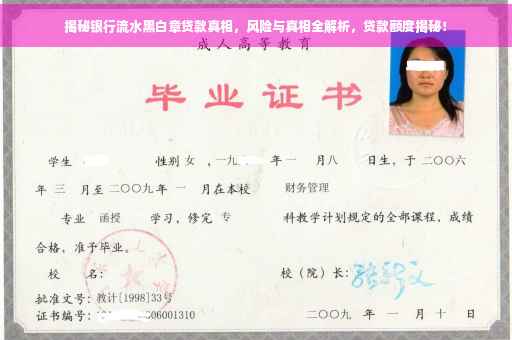 揭秘银行流水黑白章贷款真相，风险与真相全解析，贷款额度揭秘！
成人高等教育
毕业证书
学生 性别 女 ，一九 年 一 月 八 日生，于 二〇〇六
年 三 月至 二〇〇九 年 一 月在本校 财务管理
专业 函授 学习，修完 专 科教学计划规定的全部课程，成绩
合格，准予毕业。
校 名： 校（院）长：
批准文号：教计[1998]33号
证书编号： 06001310 二〇〇九 年 一 月 十 日